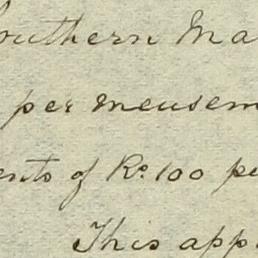 Southern Ma
per mensem
ents of Rs. 100 pe
This app